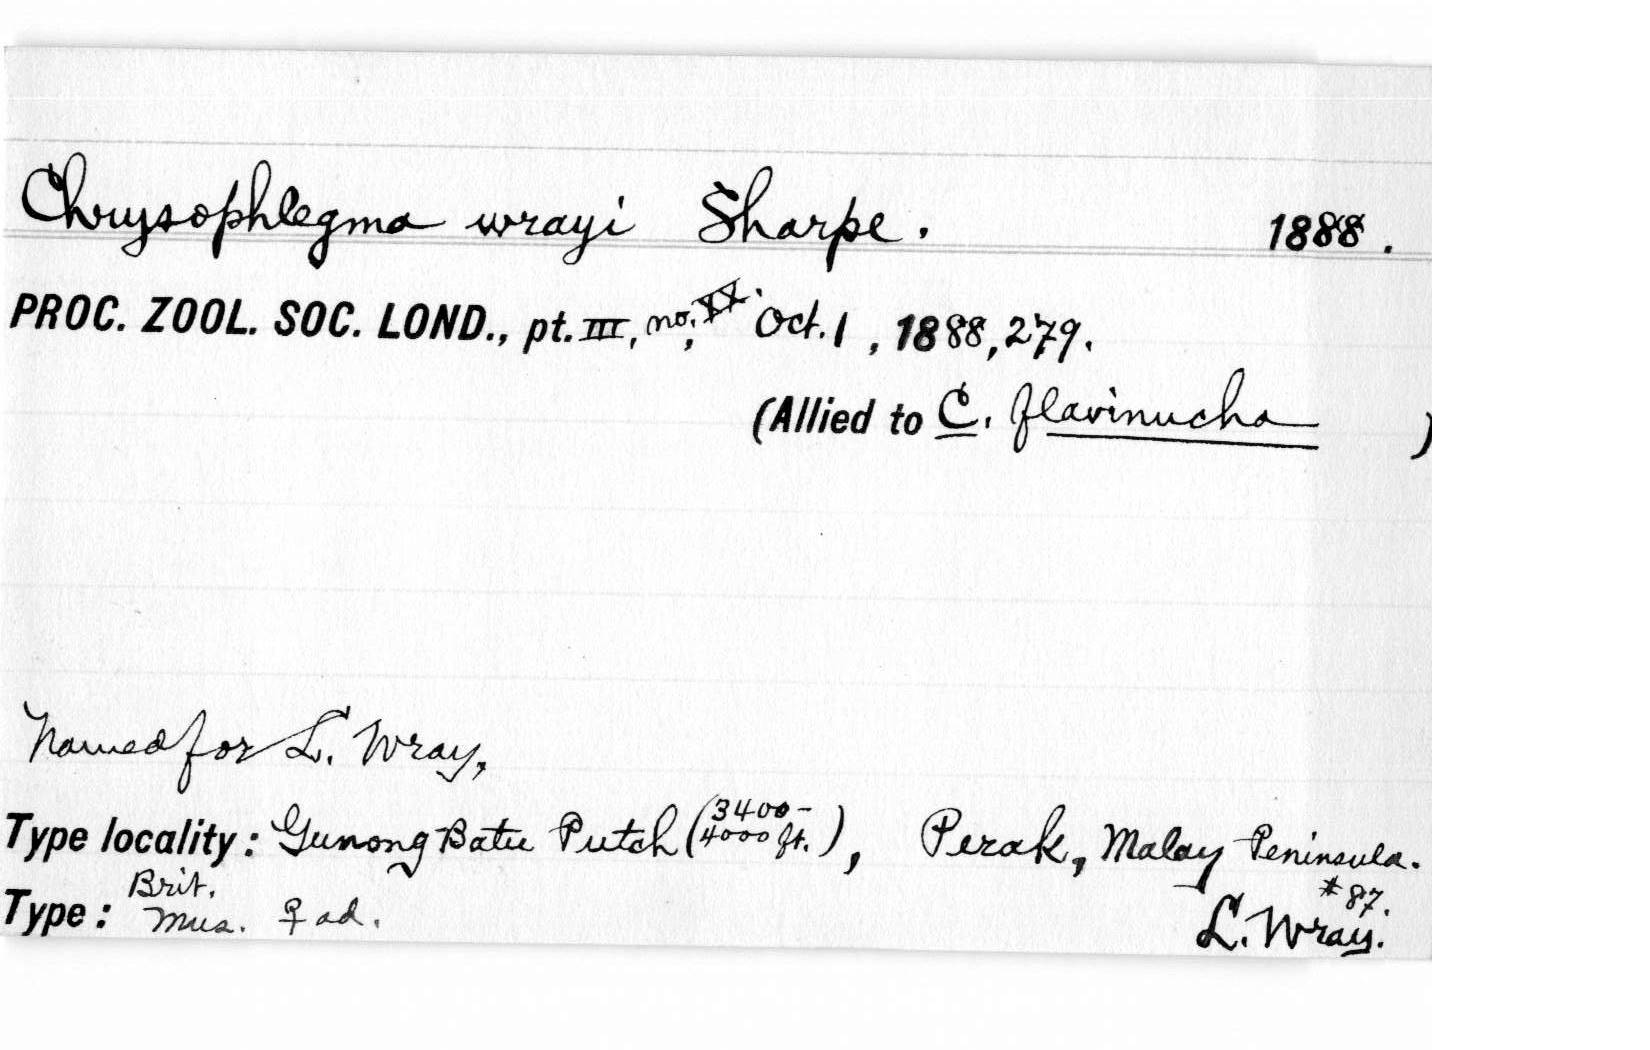 Chrysophlegma wrayi Sharpe. 1888.
PROC. ZOOL. SOC. LOND., pt. III, no. XX. Oct. 1, 1888, 279.
(Allied to C. flavinucha )
Named for L. Wray,
Type locality: Gunong Batu Putch (3400-4000 ft.), Perak, Malay Peninsula.
Type: Brit. Mus. ♀ ad. #87.
L. Wray.